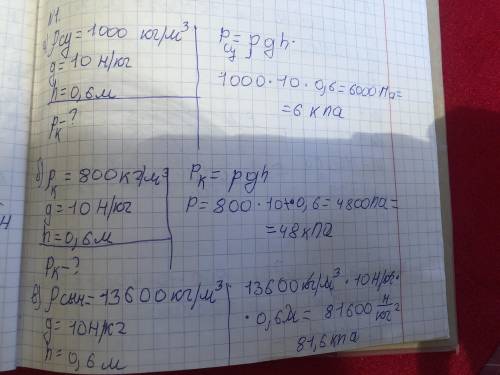 №1.
а) ρсу = 1000 кг/м³
g = 10 Н/кг
h = 0,6 м
Pк - ?
P = ρgh.
1000 · 10 · 0,6 = 6000 Па =
= 6 кПа
б) ρк = 800 кг/м³
g = 10 Н/кг
h = 0,6 м
Pк - ?
Pк = ρgh
P = 800 · 10 · 0,6 = 4800 Па =
= 48 кПа
в) ρ = 13600 кг/м³
g = 10 Н/кг
h = 0,6 м
13600 кг/м³ · 10 Н/кг ·
· 0,6 м = 81600 Н/кг²
81,6 кПа
н